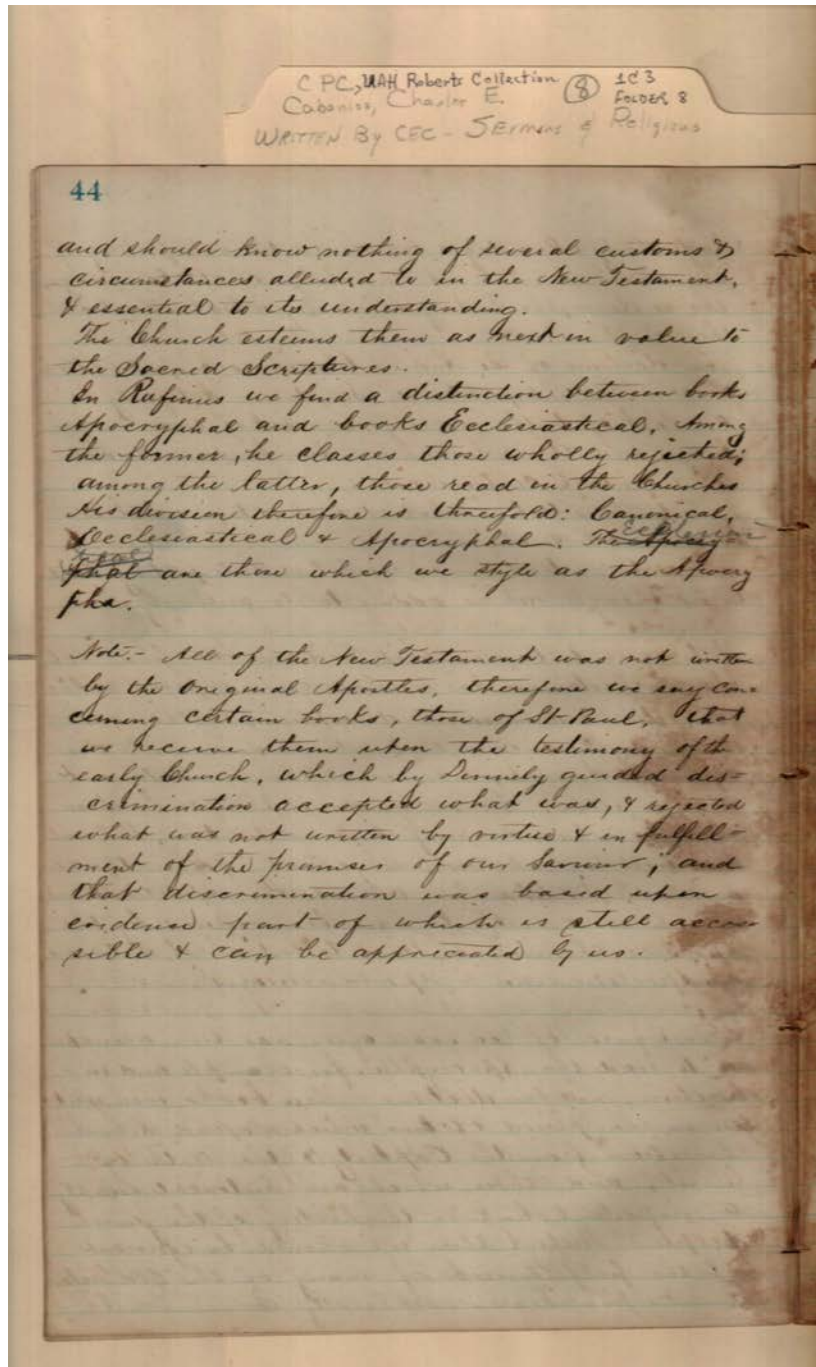 C PC, UAH Roberts Collection (8) 1C3
Cabaniss, Charles E. FOLDER 8
WRITTEN By CEC - SERMONS & Religious
44
and should know nothing of several customs &
circumstances alluded to in the New Testament,
& essential to its understanding.
The Church esteems them as next in value to
the Sacred Scriptures.
In Rufinus we find a distinction between books
Apocryphal and books Ecclesiastical. Among
the former, he classes those wholly rejected;
among the latter, those read in the Churches
His division therefore is threefold: Canonical,
Ecclesiastical & Apocryphal. The Apocry- Ecclesias
phal tical are those which we style as the Apocry
pha.
Note.- All of the New Testament was not written
by the Original Apostles, therefore we say con-
cerning certain books, those of St Paul, that
we receive them upon the testimony of the
early Church, which by Divinely guided dis-
crimination accepted what was, & rejected
what was not written by virtue & in fulfill-
ment of the promises of our Saviour; and
that discrimination was based upon
evidence part of which is still acces-
sible & can be appreciated by us.